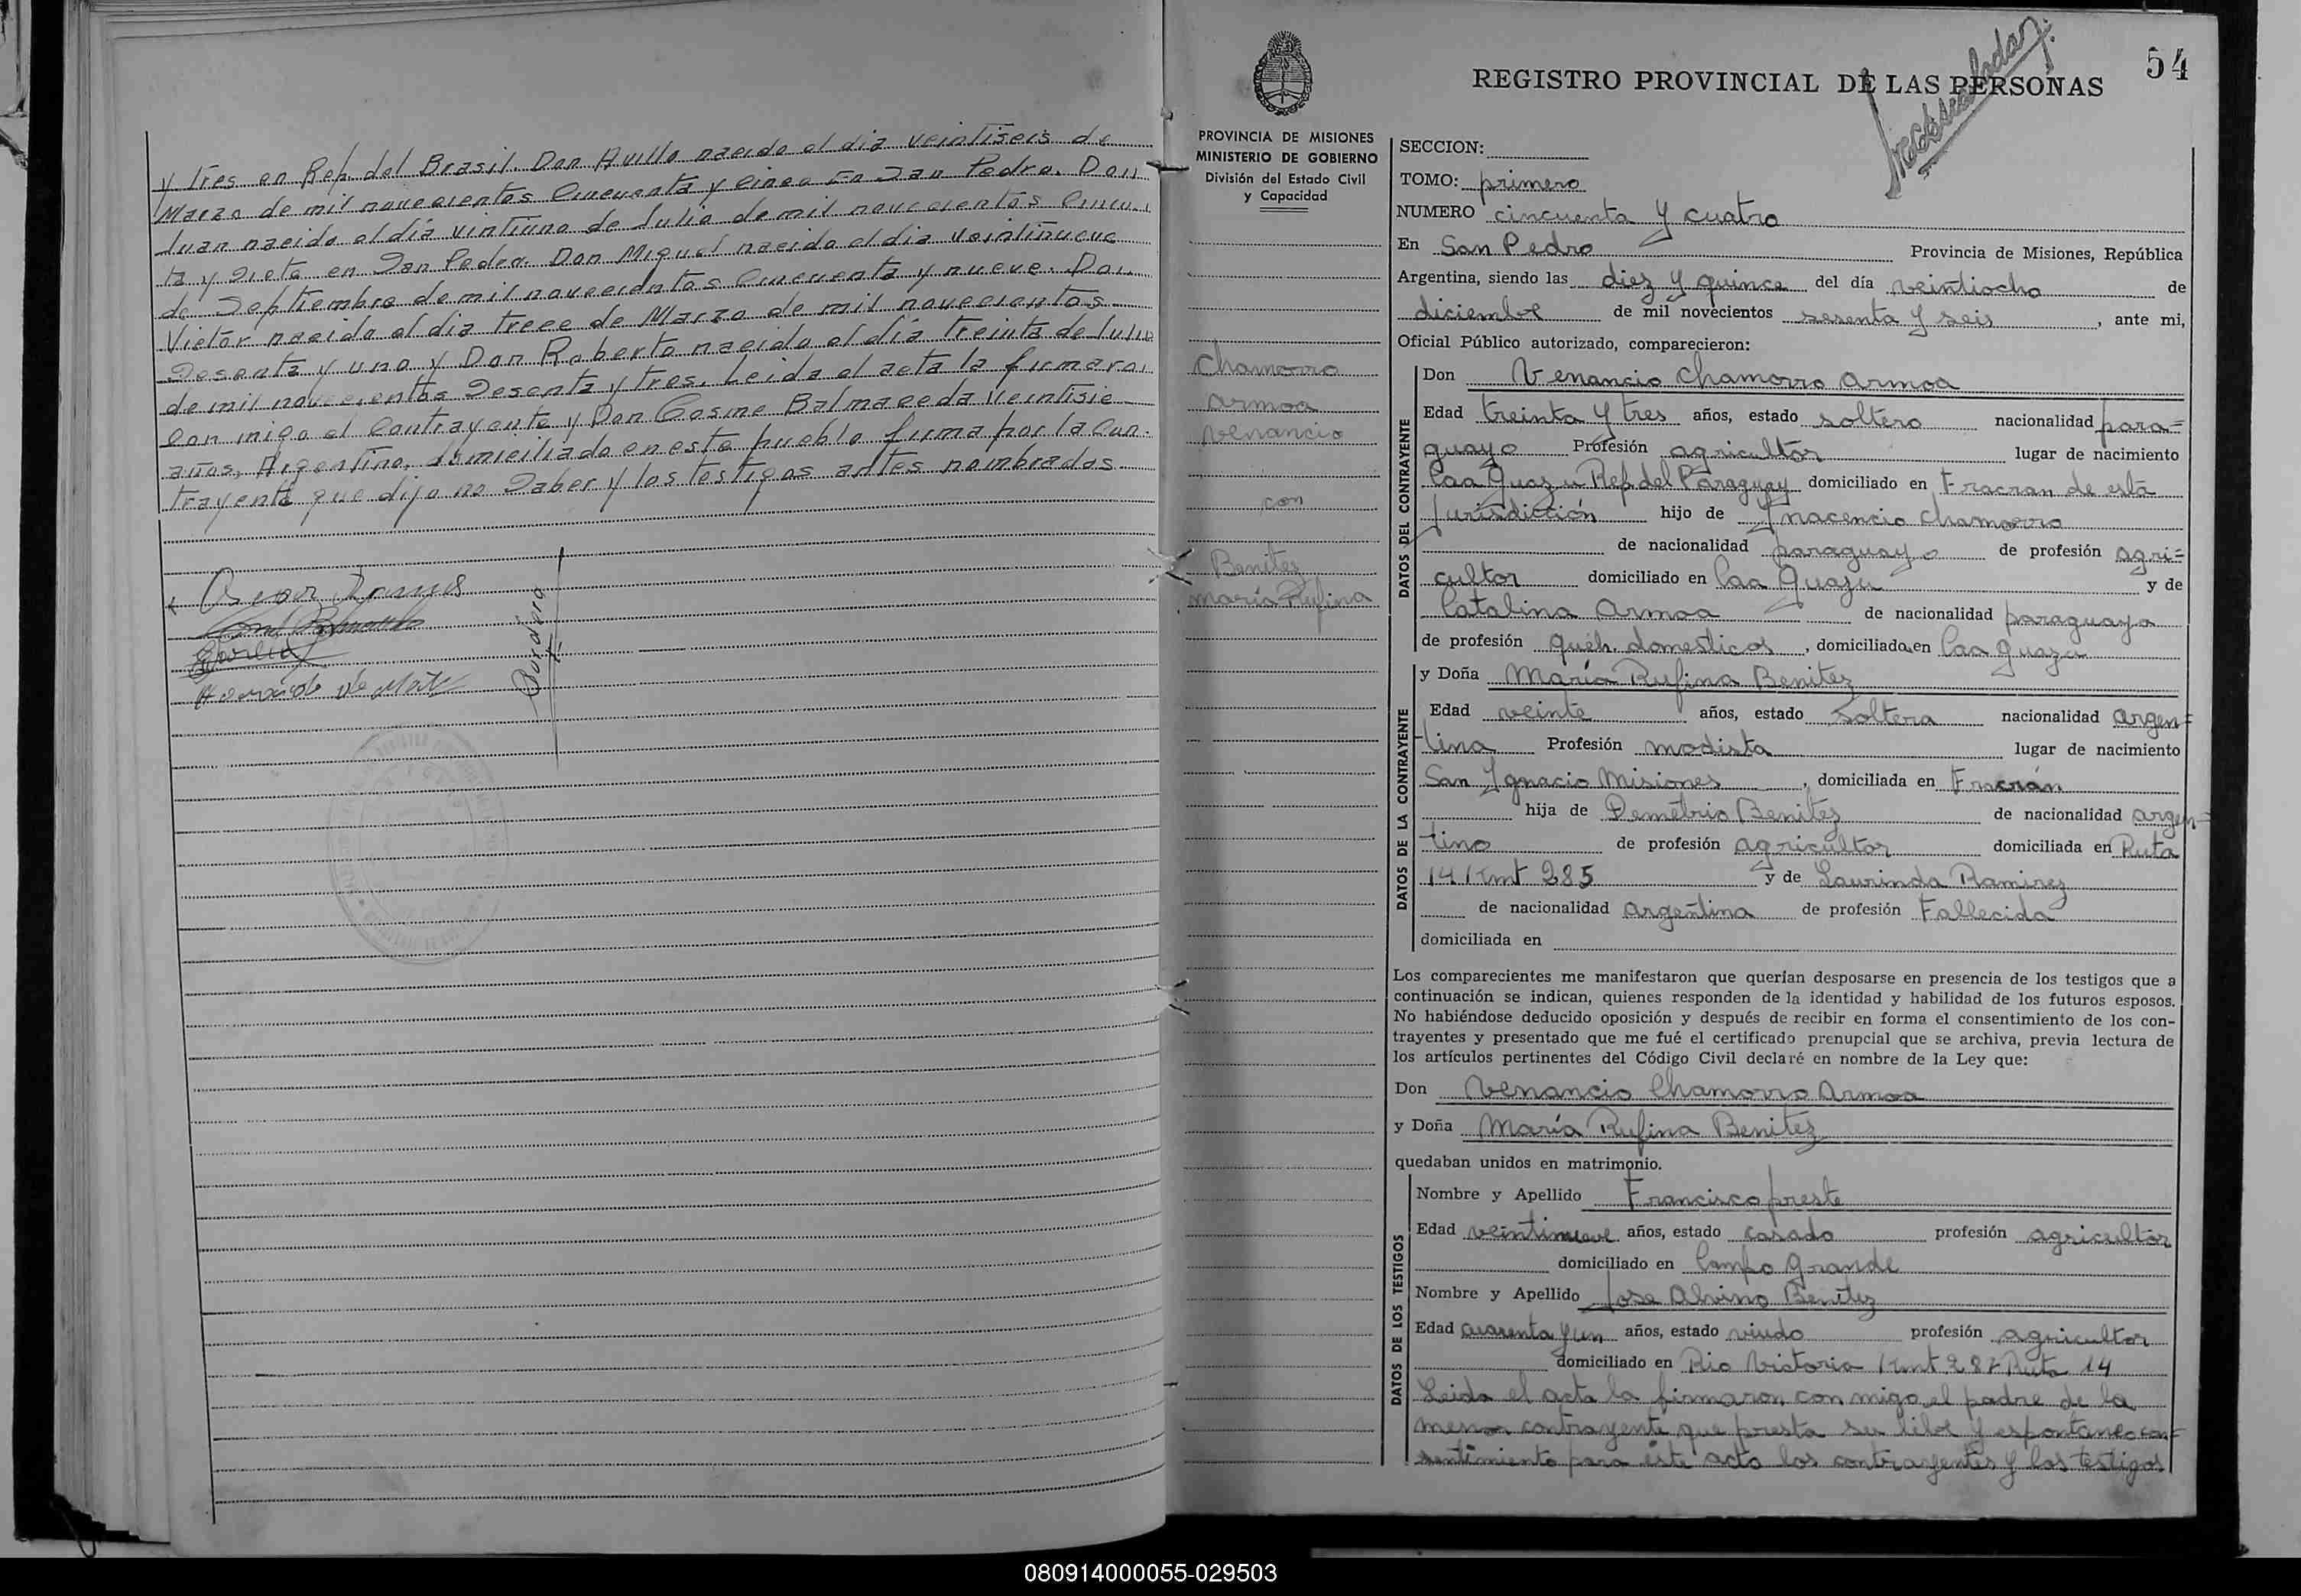 y tres en Rep. del Brasil. Don Avillo nacido el dia veintiseis de
Marzo de mil novecientos cincuenta y cinco en San Pedro. Don
Juan nacido el dia vintiuno de Julio de mil novecientos cincuen
ta y siete en San Pedro. Don Miguel nacido el dia veintinueve
de Septiembre de mil novecientos cincuenta y nueve. Don
Victor nacido el dia trece de Marzo de mil novecientos
Sesenta y uno y Don Roberto nacido el dia treinta de Julio
de mil novecientos Sesenta y tres. Leida el acta la firmaron
con migo el contrayente y Don Cosme Balmaceda Veintisie
años, Argentino, domiciliado en este pueblo firma por la con-
trayente que dijo no saber y los testigos antes nombrados
54
REGISTRO PROVINCIAL DE LAS PERSONAS
PROVINCIA DE MISIONES
MINISTERIO DE GOBIERNO
División del Estado Civil
y Capacidad
Chamorro
Armoa
Venancio
con
Benitez
María Rufina
SECCION:
TOMO: primero
NUMERO cincuenta y cuatro
En San Pedro Provincia de Misiones, República
Argentina, siendo las diez y quince del día veintiocho de
diciembre de mil novecientos sesenta y seis, ante mi,
Oficial Público autorizado, comparecieron:
DATOS DEL CONTRAYENTE
Don Venancio Chamorro Armoa
Edad treinta y tres años, estado soltero nacionalidad para=
guayo Profesión agricultor lugar de nacimiento
Caa Guazu Rep. del Paraguay domiciliado en Fracran de esta
Jurisdicción hijo de Ynocencio Chamorro
de nacionalidad paraguayo de profesión agri=
cultor domiciliado en Caa Guazu y de
Catalina Armoa de nacionalidad paraguaya
de profesión queh. domesticos, domiciliada en Caa Guazu
DATOS DE LA CONTRAYENTE
y Doña María Rufina Benitez
Edad veinte años, estado soltera nacionalidad argen=
tina Profesión modista lugar de nacimiento
San Ygnacio Misiones, domiciliada en Fracrán
hija de Demétrio Benitez de nacionalidad argen=
tino de profesión agricultor domiciliada en Ruta
14 Kmt 285 y de Laurinda Ramirez
de nacionalidad argentina de profesión Fallecida
domiciliada en
Los comparecientes me manifestaron que querían desposarse en presencia de los testigos que a
continuación se indican, quienes responden de la identidad y habilidad de los futuros esposos.
No habiéndose deducido oposición y después de recibir en forma el consentimiento de los con-
trayentes y presentado que me fué el certificado prenupcial que se archiva, previa lectura de
los artículos pertinentes del Código Civil declaré en nombre de la Ley que:
Don Venancio Chamorro Armoa
y Doña María Rufina Benitez
quedaban unidos en matrimonio.
DATOS DE LOS TESTIGOS
Nombre y Apellido Francisco preste
Edad veintinueve años, estado casado profesión agricultor
domiciliado en Campo Grande
Nombre y Apellido Jose Alvino Benitez
Edad cuarenta y un años, estado viudo profesión agricultor
domiciliado en Rio Victoria Kmt 287 Ruta 14
Leida el acta la firmaron con migo, el padre de la
menor contrayente que presta su libre y espontaneo con=
sentimiento para este acto los contrayentes y los testigos
080914000055-029503